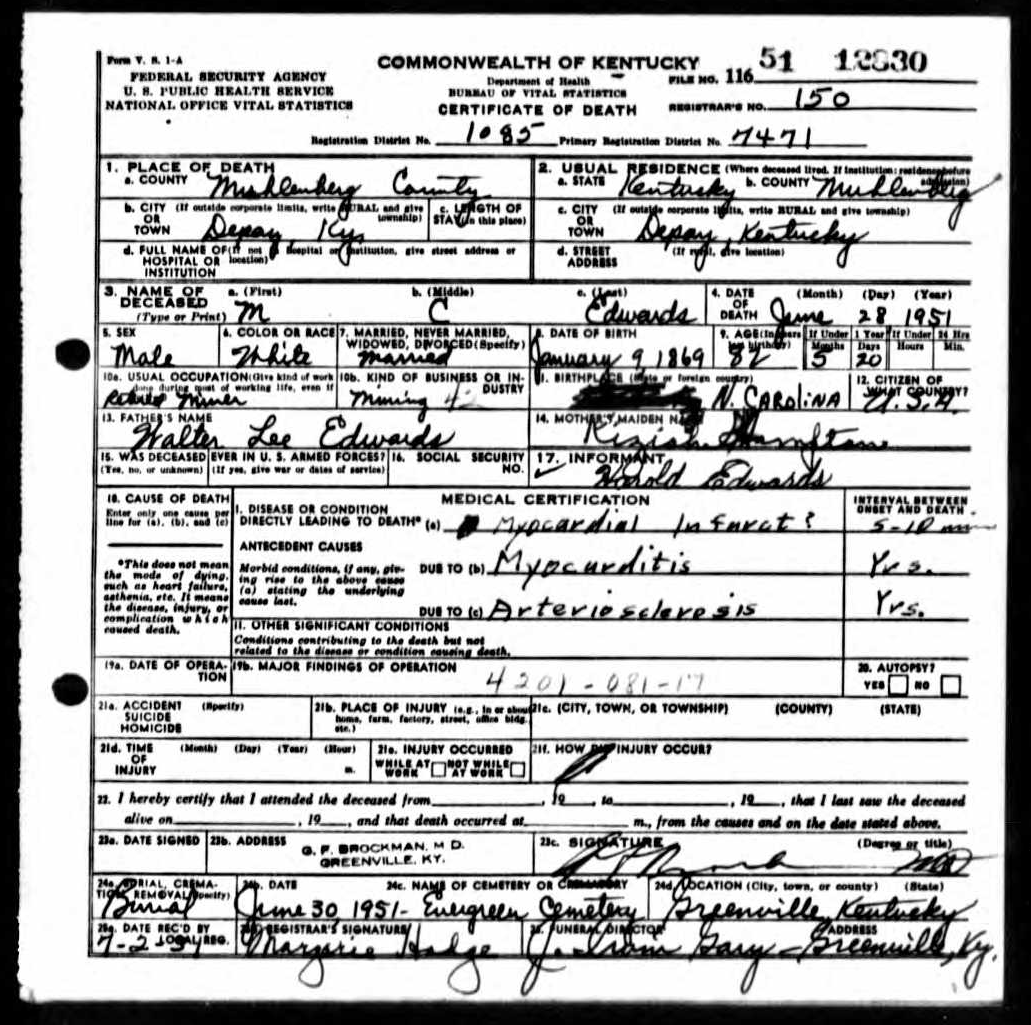 Form V. S. 1-A
FEDERAL SECURITY AGENCY
U. S. PUBLIC HEALTH SERVICE
NATIONAL OFFICE VITAL STATISTICS
COMMONWEALTH OF KENTUCKY
Department of Health
BUREAU OF VITAL STATISTICS
CERTIFICATE OF DEATH
FILE NO. 116 51 12830
REGISTRAR'S NO. 150
Registration District No. 1085 Primary Registration District No. 7471
1. PLACE OF DEATH
a. COUNTY Muhlenberg County
2. USUAL RESIDENCE (Where deceased lived. If institution: residence before admission)
a. STATE Kentucky b. COUNTY Muhlenberg
b. CITY (If outside corporate limits, write RURAL and give township)
OR
TOWN Depoy Ky
c. LENGTH OF STAY (in this place)
c. CITY (If outside corporate limits, write RURAL and give township)
OR
TOWN Depoy, Kentucky
d. FULL NAME OF (If not in hospital or institution, give street address or location)
HOSPITAL OR
INSTITUTION
d. STREET (If rural, give location)
ADDRESS
3. NAME OF DECEASED (Type or Print)
a. (First) M
b. (Middle) C
c. (Last) Edwards
4. DATE OF DEATH (Month) (Day) (Year) June 28 1951
5. SEX Male
6. COLOR OR RACE White
7. MARRIED, NEVER MARRIED, WIDOWED, DIVORCED (Specify) Married
8. DATE OF BIRTH January 9 1869
9. AGE (In years last birthday) 82
If Under 1 Year Months 5 Days 20
If Under 24 Hrs Hours Min.
10a. USUAL OCCUPATION (Give kind of work done during most of working life, even if
Retired Miner
10b. KIND OF BUSINESS OR INDUSTRY Mining 42
11. BIRTHPLACE (State or foreign country) N. CAROLINA
12. CITIZEN OF WHAT COUNTRY? U.S.A.
13. FATHER'S NAME
Walter Lee Edwards
14. MOTHER'S MAIDEN NAME
Keziah Hampton
15. WAS DECEASED EVER IN U. S. ARMED FORCES?
(Yes, no, or unknown) (If yes, give war or dates of service)
16. SOCIAL SECURITY NO.
17. INFORMANT
Harold Edwards
18. CAUSE OF DEATH
Enter only one cause per line for (a), (b), and (c)
*This does not mean the mode of dying, such as heart failure, asthenia, etc. It means the disease, injury, or complication which caused death.
MEDICAL CERTIFICATION
INTERVAL BETWEEN ONSET AND DEATH
I. DISEASE OR CONDITION
DIRECTLY LEADING TO DEATH* (a) Myocardial Infarct? 5-10 min
ANTECEDENT CAUSES
Morbid conditions, if any, giving rise to the above cause (a) stating the underlying cause last.
DUE TO (b) Myocarditis Yrs.
DUE TO (c) Arteriosclerosis Yrs.
II. OTHER SIGNIFICANT CONDITIONS
Conditions contributing to the death but not related to the disease or condition causing death.
19a. DATE OF OPERATION
19b. MAJOR FINDINGS OF OPERATION
4201-081-17
20. AUTOPSY?
YES NO
21a. ACCIDENT (Specify)
SUICIDE
HOMICIDE
21b. PLACE OF INJURY (e.g., in or about home, farm, factory, street, office bldg. etc.)
21c. (CITY, TOWN, OR TOWNSHIP) (COUNTY) (STATE)
21d. TIME (Month) (Day) (Year) (Hour)
OF
INJURY m.
21e. INJURY OCCURRED
WHILE AT WORK NOT WHILE AT WORK
21f. HOW DID INJURY OCCUR?
22. I hereby certify that I attended the deceased from , 19 , to , 19 , that I last saw the deceased
alive on , 19 , and that death occurred at m., from the causes and on the date stated above.
23a. DATE SIGNED
23b. ADDRESS
G. F. BROCKMAN, M D.
GREENVILLE, KY.
23c. SIGNATURE (Degree or title)
MD
24a. BURIAL, CREMATION, REMOVAL (Specify)
Burial
24b. DATE
June 30, 1951-
24c. NAME OF CEMETERY OR CREMATORY
Evergreen Cemetery
24d. LOCATION (City, town, or county) (State)
Greenville, Kentucky
25a. DATE REC'D BY LOCAL REG.
7-2
REGISTRAR'S SIGNATURE
Marjorie Hodge
FUNERAL DIRECTOR ADDRESS
J. Irvin Gary - Greenville, Ky.